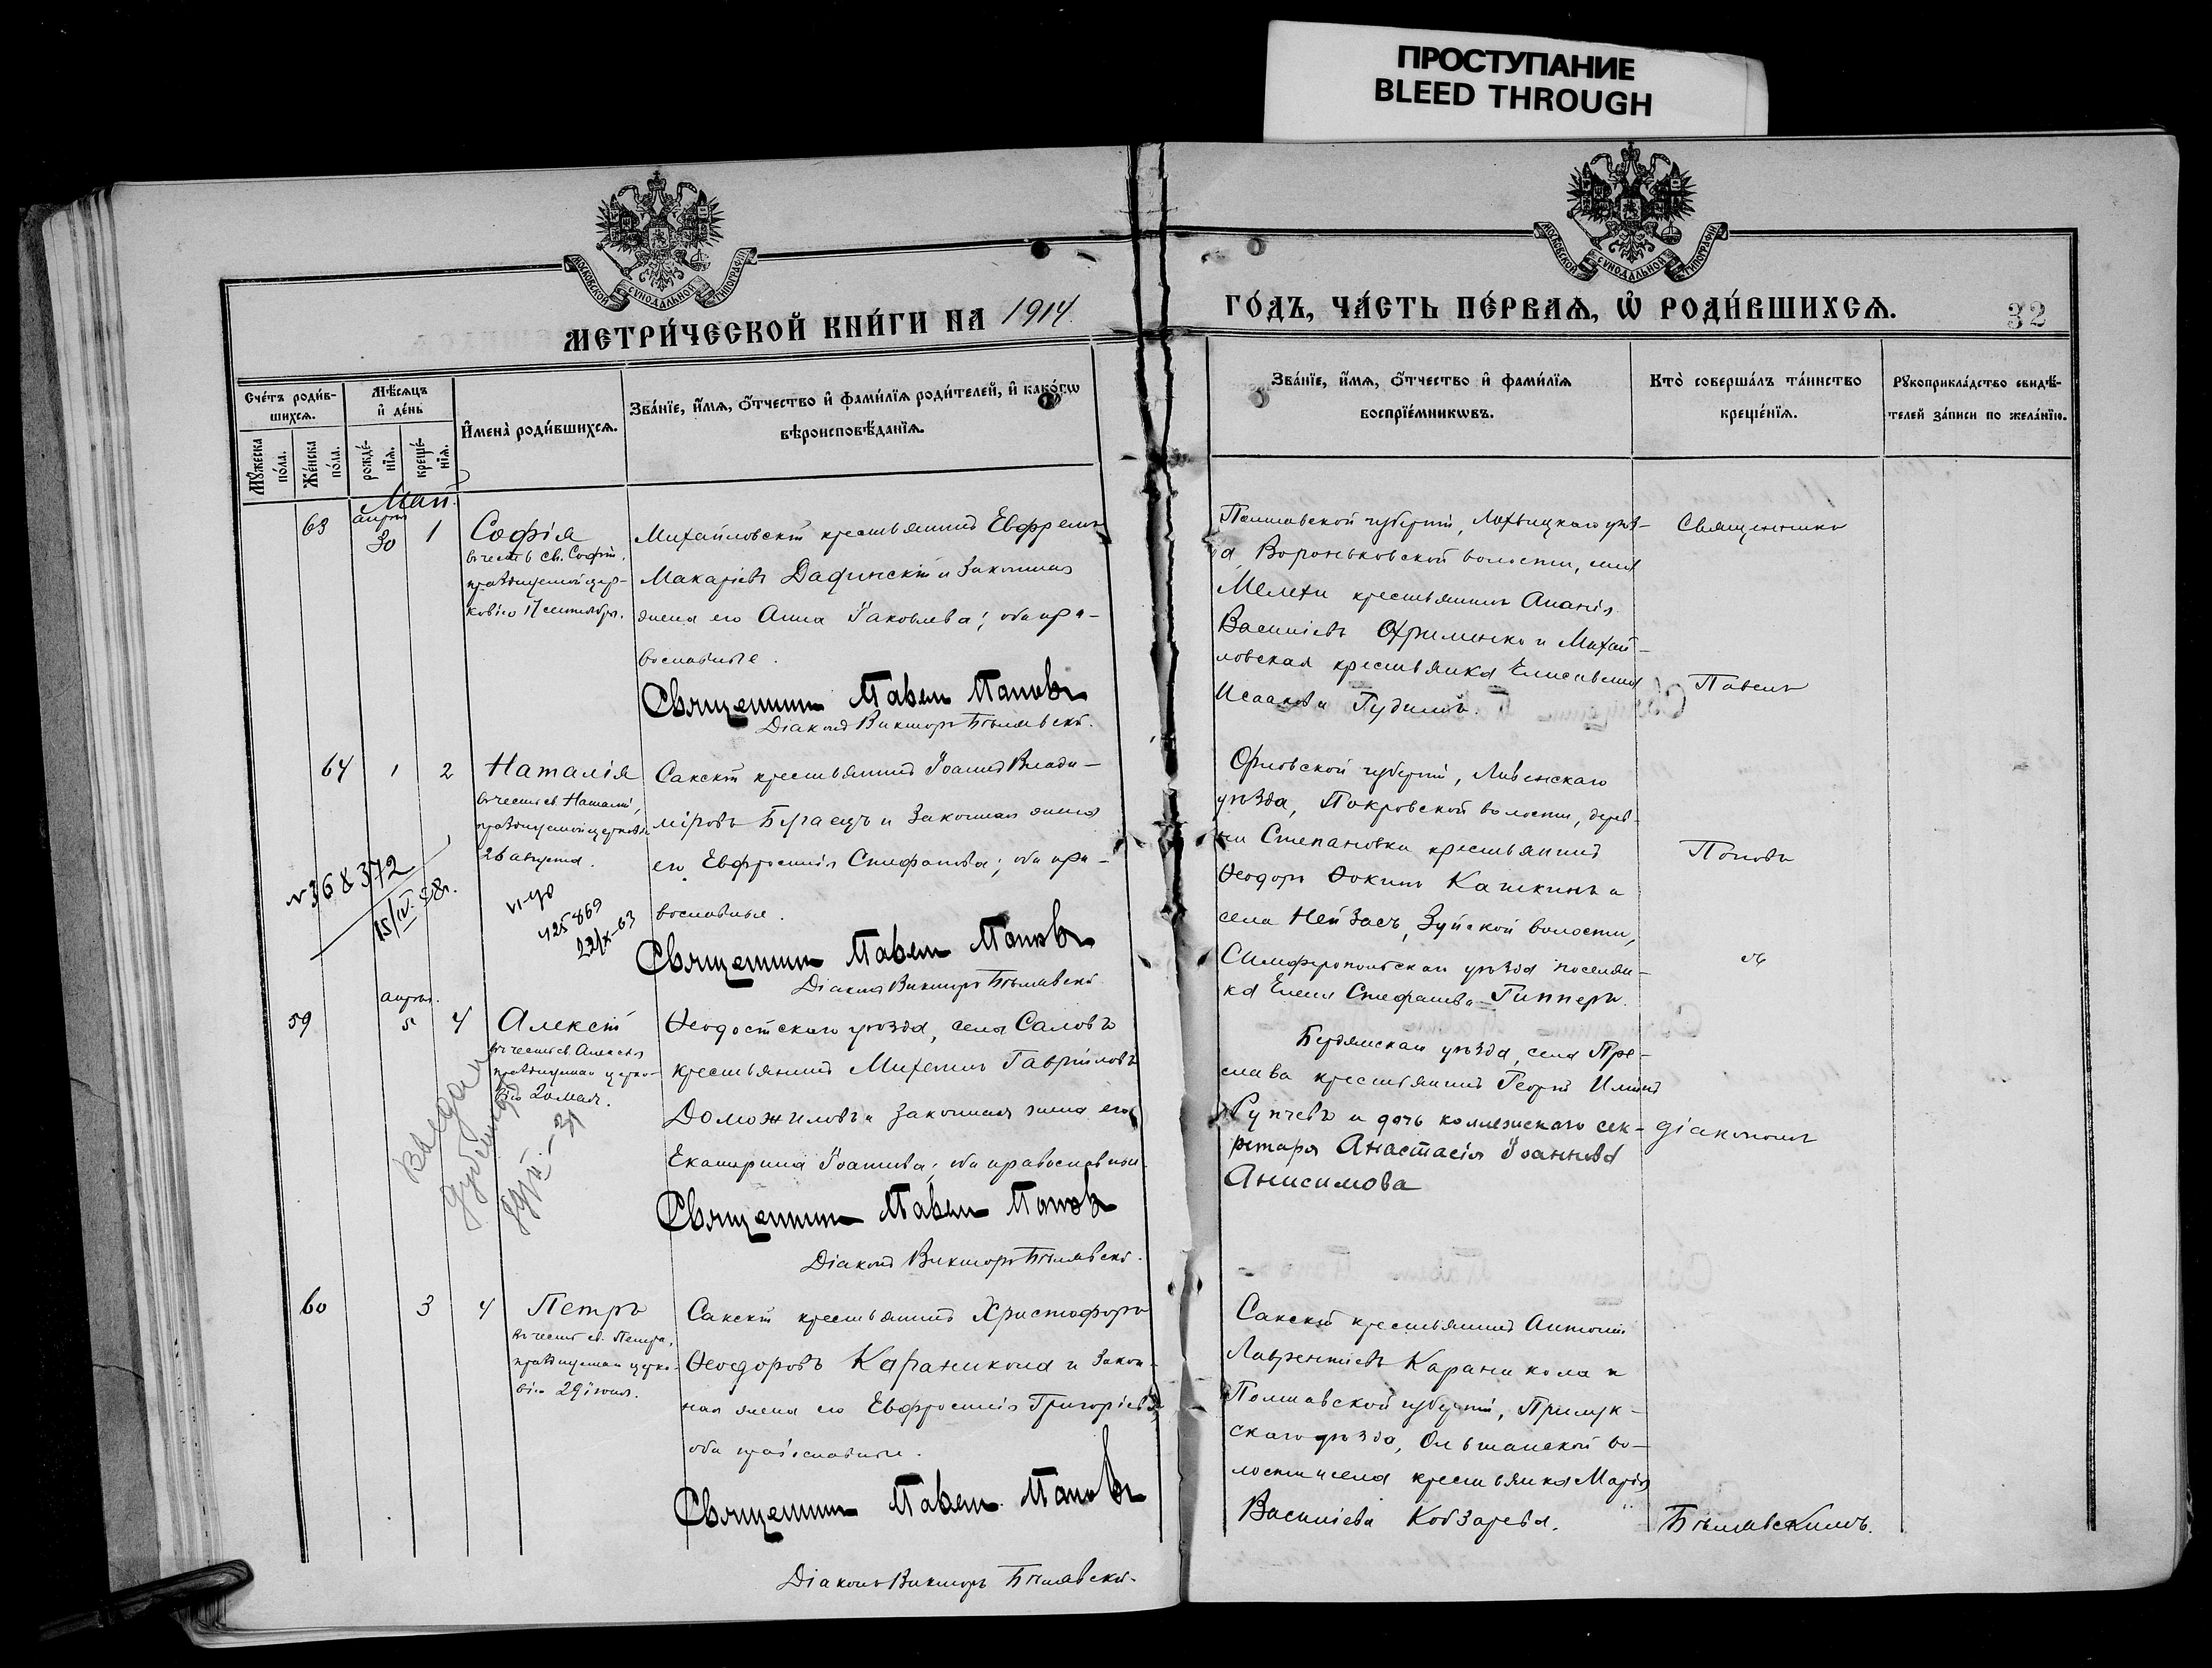 ПРОСТУПАНИЕ
BLEED THROUGH
МОСКОВСКОЙ СѴНОДАЛЬНОЙ ТИПОГРАФІИ
МОСКОВСКОЙ СѴНОДАЛЬНОЙ ТИПОГРАФІИ
МЕТРИ́ЧЕСКОЙ КНИ́ГИ НА 1914
ГО́ДЪ, ЧА́СТЬ ПЕ́РВАѦ, Ѽ РОДИ́ВШИХСѦ.
32
Сче́тъ роди́в-
шихсѧ.
Мꙋ́жеска
по́ла.
Же́нска
по́ла.
Мѣ́сѧцъ
и҆ де́нь
рожде́-
нїѧ.
креще́-
нїѧ.
И҆мена̀ роди́вшихсѧ.
Зва́нїе, и҆́мѧ, ѻ҆́тчество и҆ фами́лїѧ роди́телей, и҆ како́гѡ
вѣроисповѣ́данїѧ.
Зва́нїе, и҆́мѧ, ѻ҆́тчество и҆ фами́лїѧ
воспрїе́мникѡвъ.
Кто̀ соверша́лъ та́инство
креще́нїѧ.
Рꙋкоприкла́дство свидѣ́-
телей за́писи по жела́нїю.
Май.
63
апрѣля
30
1
Софія
въ честь св. Софіи,
празднуемой цер-
ковію 17 сентября.
Михайловскій крестьянинъ Евфремъ
Макаріевъ Дафинскій и законная
жена его Анна Іаковлева; оба пра-
вославные.
Священникъ Павелъ Поповъ
Діаконъ Викторъ Бѣлявскій.
Полтавской губерніи, Лохвицкаго уѣз-
да, Вороньковской волости, села
Мелехи крестьянинъ Ананія
Василіевъ Охрименко и Михай-
ловская крестьянка Елисавета
Исаакова Гудимова.
Священникъ
Павелъ
64
1
2
Наталія
въ честь св. Наталіи,
празднуемой церковію
26 августа.
Сакскій крестьянинъ Іоаннъ Влади-
міровъ Бераецъ и законная жена
его Евфросинія Стефанова; оба пра-
вославные.
Священникъ Павелъ Поповъ
Діаконъ Викторъ Бѣлявскій
Орловской губерніи, Ливенскаго
уѣзда, Покровской волости, дерев-
ни Степановки крестьянинъ
Ѳеодоръ Ѳокинъ Кашкинъ и
села Нейзацъ, Зуйской волости,
Симферопольскаго уѣзда поселян-
ка Елена Стефанова Гипперъ.
Поповъ
съ
№368372
15/IV-58г.
VI-ЯР
425869
22/X-63
59
апрѣля
5
4
Алексій
въ честь св. Алексія
празднуемаго церко-
вію 20 мая.
Ѳеодосійскаго уѣзда, села Саловъ
крестьянинъ Михаилъ Гавріиловъ
Доможиловъ и законная жена его
Екатерина Іоаннова; оба православные.
Священникъ Павелъ Поповъ
Діаконъ Викторъ Бѣлявскій.
Бердянскаго уѣзда, села Пре-
слава крестьянинъ Георгій Иліинъ
Рупчевъ и дочь коллежскаго сек-
ретаря Анастасія Іоаннова
Анисимова
діакономъ
Выдан
дубликат
60
3
4
Петръ
въ честь св. Петра,
празднуемаго церко-
вію 29 іюня.
Сакскій крестьянинъ Христофоръ
Ѳеодоровъ Караникола и закон-
ная жена его Евфросинія Григоріева
оба православные.
Священникъ Павелъ Поповъ
Діаконъ Викторъ Бѣлявскій.
Сакскій крестьянинъ Антоній
Лаврентіевъ Караникола и
Полтавской губерніи, Прилук-
скаго уѣзда, Ольшанской во-
лости и села крестьянка Марія
Василіева Кобзарева.
Бѣлявскимъ.